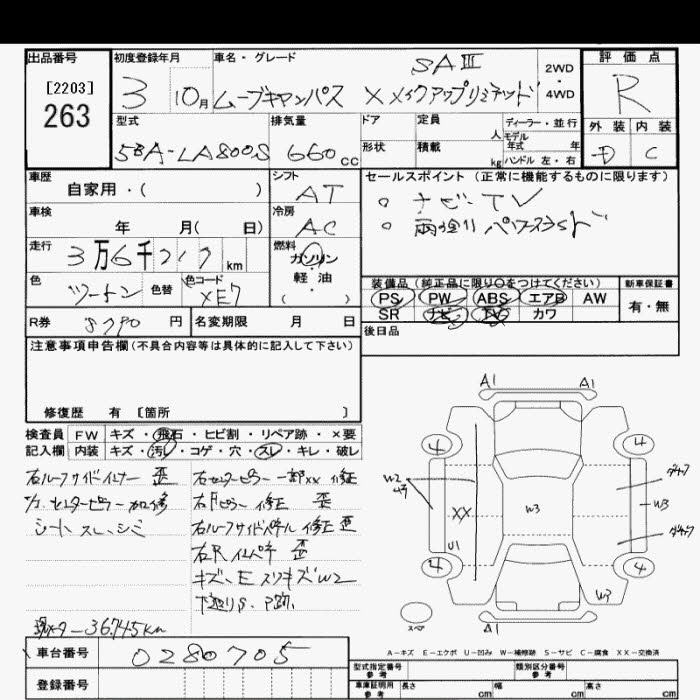 出品番号 初度登録年月 車名・グレード 評価点
[2203]
263
3 10月 ムーブキャンバス XメイクアップリミテッドSAⅢ 2WD・4WD
R
型式 排気量 ドア 定員 人 ディーラー・並行 外装 内装
5BA-LA800S 660cc 形状 積載 kg モデル年式 年 ハンドル 左・右 D C
車歴 シフト セールスポイント (正常に機能するものに限ります)
自家用・( ) AT
。ナビ・TV
車検 冷房
年 月( 日) AC
。両側パワスラド
走行 燃料
3万6千 km ガソリン
軽油
( ・ )
色 色替 色コード
ツートン XE7
装備品 (純正品に限り○をつけてください) 新車保証書
PS PW ABS エアB AW 有・無
SR ナビ TV カワ
R券 円 名変期限 月 日
後日品
注意事項申告欄 (不具合内容等は具体的に記入して下さい)
修復歴 有 [箇所 ]
検査員 FW キズ・飛石・ヒビ割・リペア跡・×要
記入欄 内装 キズ・汚れ・コゲ・穴・スレ・キレ・破レ
右ルーフサイドインナー 歪
右センターピラー一部XX 修正
シートスレ、シミ
右Fピラー 修正 歪
右ルーフサイドパネル 修正 歪
キズ、E スリキズW2
現メーター36745km
A1 A1
4 4
W2
XX W3 W3
U1
4 4
W3
スペア
A1
A-キズ E-エクボ U-凹み W-補修跡 S-サビ C-腐食 XX-交換済
車台番号 0280705
型式指定番号 参考 類別区分番号 参考
登録番号 車庫証明用 参考 長さ cm 幅 cm 高さ cm